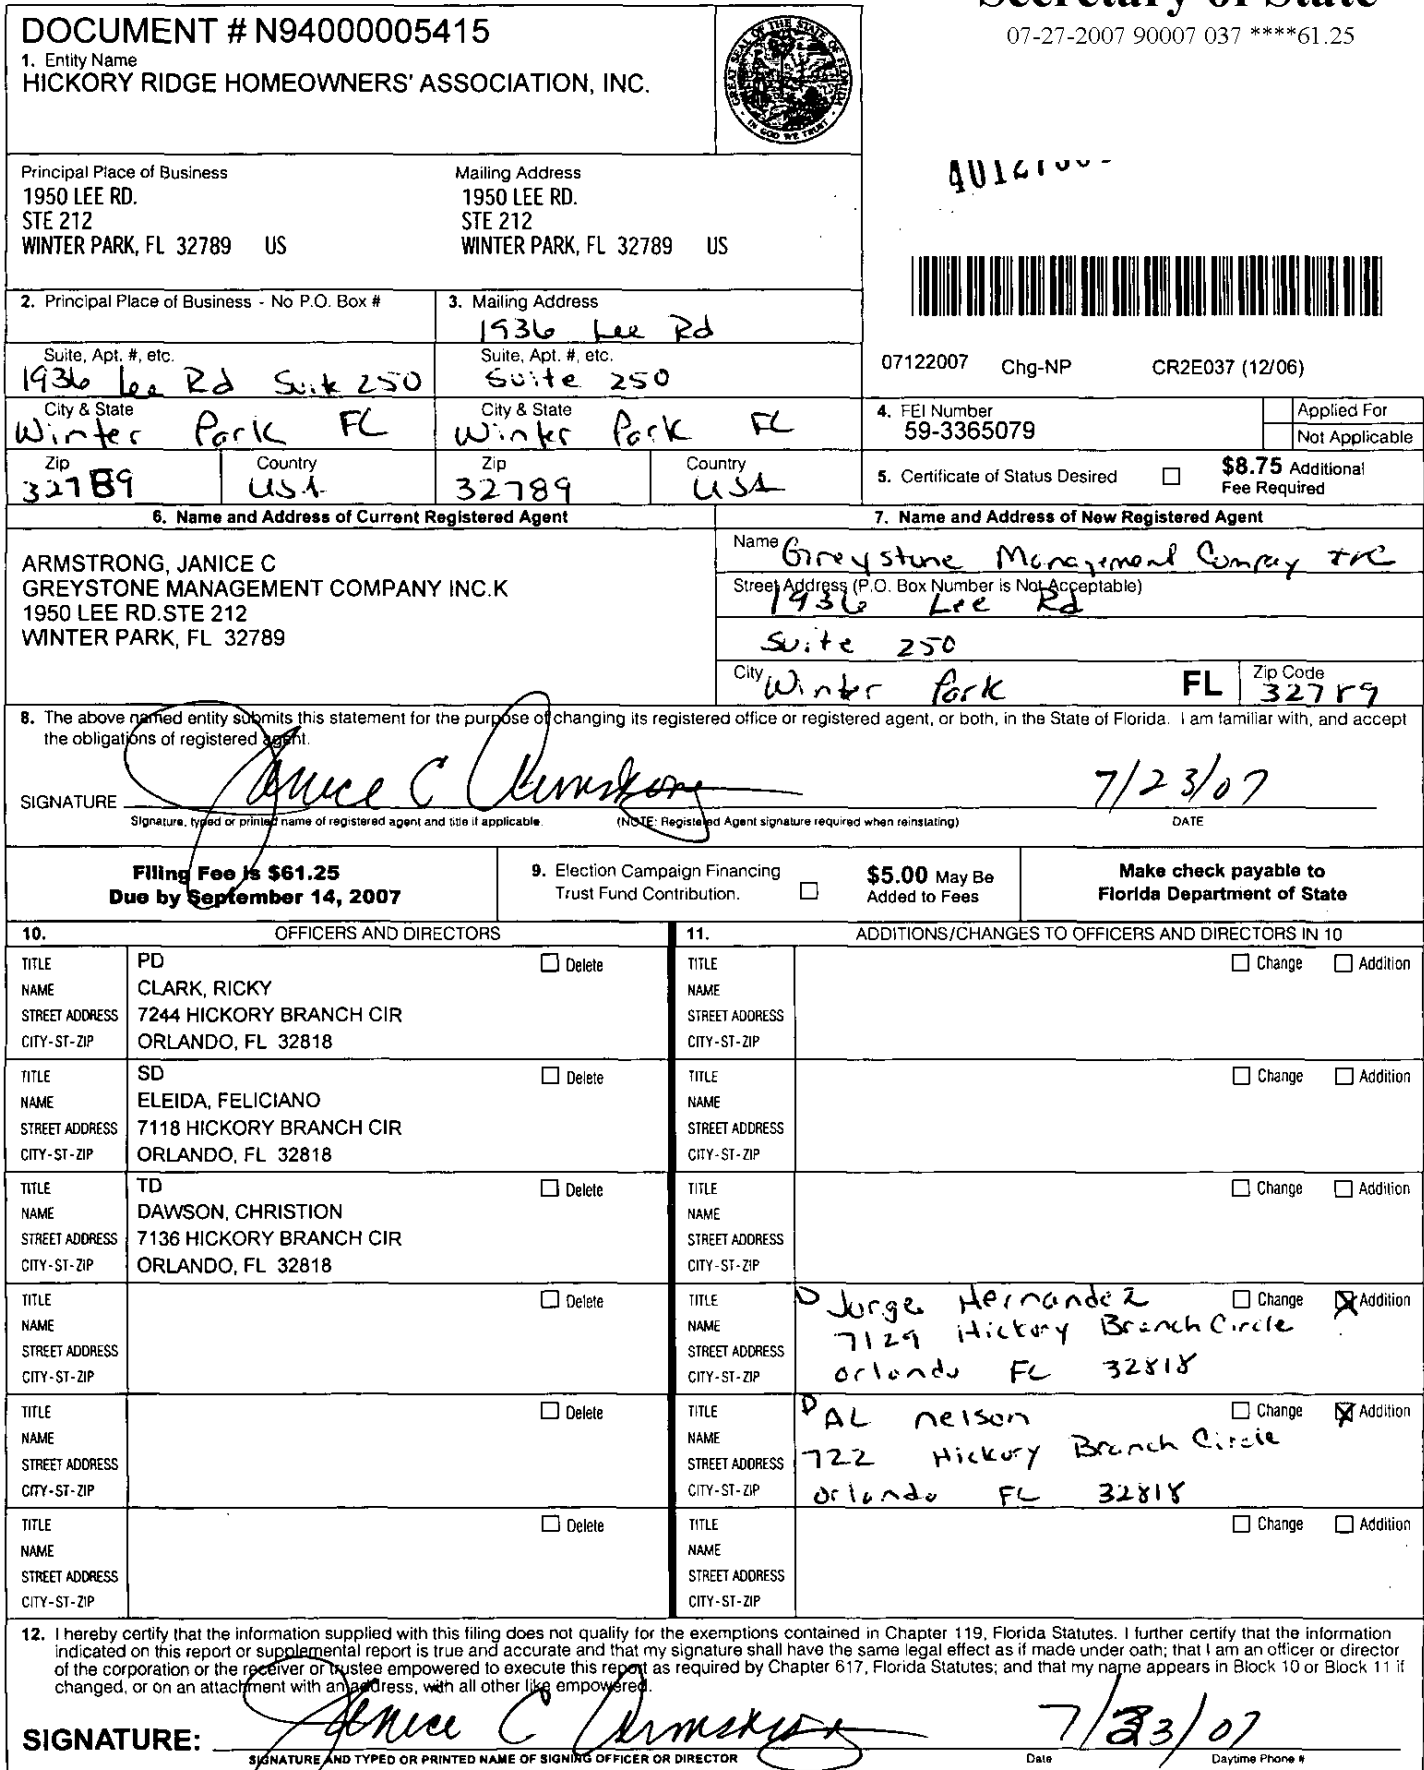 Secretary of State
07-27-2007 90007 037 ****61.25
DOCUMENT # N94000005415
1. Entity Name
HICKORY RIDGE HOMEOWNERS' ASSOCIATION, INC.
GREAT SEAL OF THE STATE OF FLORIDA
IN GOD WE TRUST
Principal Place of Business
1950 LEE RD.
STE 212
WINTER PARK, FL 32789 US
Mailing Address
1950 LEE RD.
STE 212
WINTER PARK, FL 32789 US
2. Principal Place of Business - No P.O. Box #
3. Mailing Address
1936 Lee Rd
Suite, Apt. #, etc.
1936 Lee Rd Suite 250
Suite, Apt. #, etc.
Suite 250
City & State
Winter Park FL
City & State
Winter Park FL
Zip
32789
Country
USA
Zip
32789
Country
USA
07122007 Chg-NP CR2E037 (12/06)
4. FEI Number
59-3365079
Applied For
Not Applicable
5. Certificate of Status Desired
$8.75 Additional
Fee Required
6. Name and Address of Current Registered Agent
ARMSTRONG, JANICE C
GREYSTONE MANAGEMENT COMPANY INC.K
1950 LEE RD.STE 212
WINTER PARK, FL 32789
7. Name and Address of New Registered Agent
Name Greystone Management Company INC
Street Address (P.O. Box Number is Not Acceptable)
1936 Lee Rd
Suite 250
City Winter Park FL Zip Code
32789
8. The above named entity submits this statement for the purpose of changing its registered office or registered agent, or both, in the State of Florida. I am familiar with, and accept
the obligations of registered agent.
SIGNATURE Janice C Armstrong 7/23/07
Signature, typed or printed name of registered agent and title if applicable. (NOTE: Registered Agent signature required when reinstating) DATE
Filing Fee is $61.25
Due by September 14, 2007
9. Election Campaign Financing
Trust Fund Contribution.
$5.00 May Be
Added to Fees
Make check payable to
Florida Department of State
10. OFFICERS AND DIRECTORS
11. ADDITIONS/CHANGES TO OFFICERS AND DIRECTORS IN 10
TITLE PD Delete
NAME CLARK, RICKY
STREET ADDRESS 7244 HICKORY BRANCH CIR
CITY-ST-ZIP ORLANDO, FL 32818
TITLE Change Addition
NAME
STREET ADDRESS
CITY-ST-ZIP
TITLE SD Delete
NAME ELEIDA, FELICIANO
STREET ADDRESS 7118 HICKORY BRANCH CIR
CITY-ST-ZIP ORLANDO, FL 32818
TITLE Change Addition
NAME
STREET ADDRESS
CITY-ST-ZIP
TITLE TD Delete
NAME DAWSON, CHRISTION
STREET ADDRESS 7136 HICKORY BRANCH CIR
CITY-ST-ZIP ORLANDO, FL 32818
TITLE Change Addition
NAME
STREET ADDRESS
CITY-ST-ZIP
TITLE Delete
NAME
STREET ADDRESS
CITY-ST-ZIP
TITLE D Jorge Hernandez Change Addition
NAME 7129 Hickory Branch Circle
STREET ADDRESS
CITY-ST-ZIP Orlando FL 32818
TITLE Delete
NAME
STREET ADDRESS
CITY-ST-ZIP
TITLE D AL nelson Change Addition
NAME
STREET ADDRESS 722 Hickory Branch Circle
CITY-ST-ZIP Orlando FL 32818
TITLE Delete
NAME
STREET ADDRESS
CITY-ST-ZIP
TITLE Change Addition
NAME
STREET ADDRESS
CITY-ST-ZIP
12. I hereby certify that the information supplied with this filing does not qualify for the exemptions contained in Chapter 119, Florida Statutes. I further certify that the information
indicated on this report or supplemental report is true and accurate and that my signature shall have the same legal effect as if made under oath; that I am an officer or director
of the corporation or the receiver or trustee empowered to execute this report as required by Chapter 617, Florida Statutes; and that my name appears in Block 10 or Block 11 if
changed, or on an attachment with an address, with all other like empowered.
SIGNATURE: Janice C Armstrong 7/23/07
SIGNATURE AND TYPED OR PRINTED NAME OF SIGNING OFFICER OR DIRECTOR Date Daytime Phone #